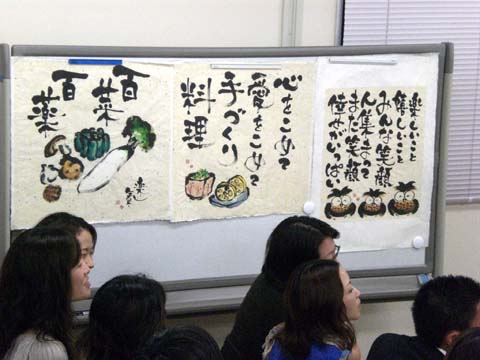 百菜
百薬
心をこめて
愛をこめて
手づくり
料理
楽しいこと
嬉しいこと
みんな笑顔
ん集まって
また笑顔
倖せがいっぱい